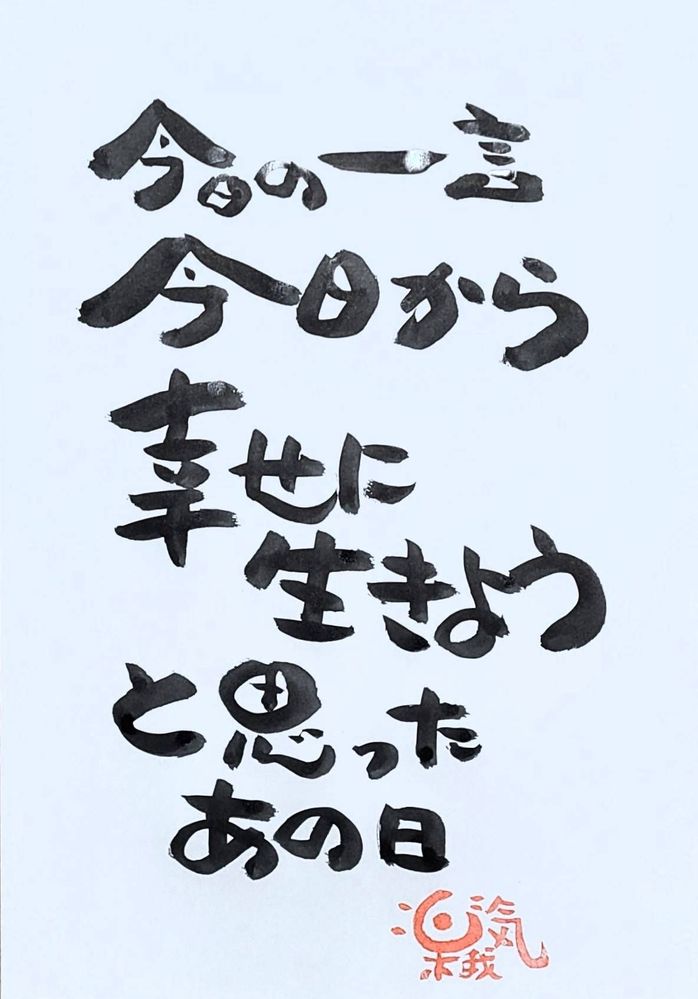 今日の一言
今日から
幸せに
生きよう
と思った
あの日
楽気